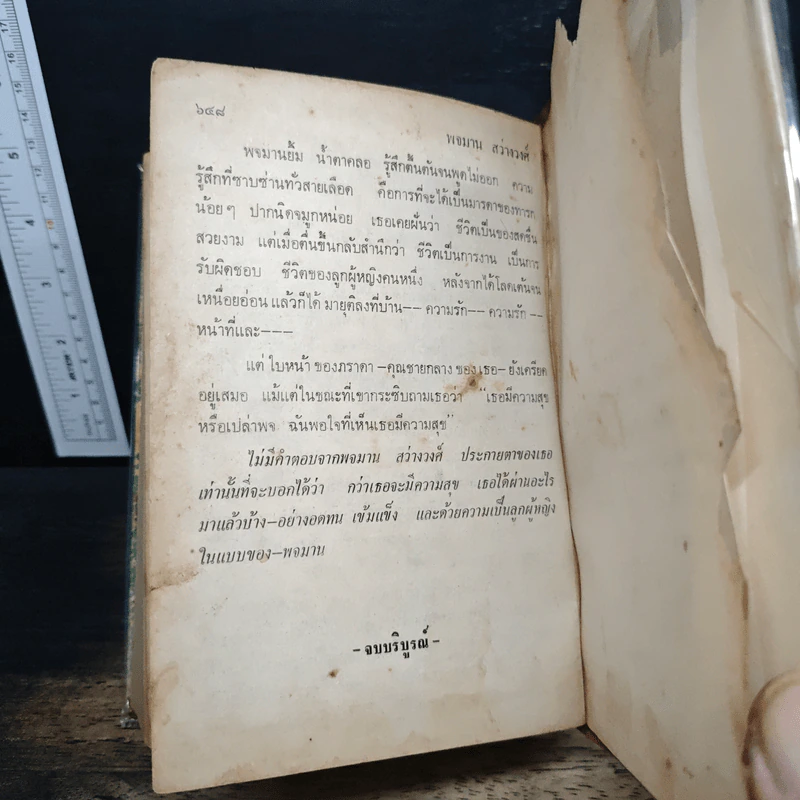 ๖๔๘
พจมาน สว่างวงศ์
พจมานยิ้ม น้ำตาคลอ รู้สึกตื้นตันจนพูดไม่ออก ความ
รู้สึกที่ซาบซ่านทั่วสายเลือด คือการที่จะได้เป็นมารดาของทารก
น้อยๆ ปากนิดจมูกหน่อย เธอเคยฝันว่า ชีวิตเป็นของสดชื่น
สวยงาม แต่เมื่อตื่นขึ้นกลับสำนึกว่า ชีวิตเป็นการงาน เป็นการ
รับผิดชอบ ชีวิตของลูกผู้หญิงคนหนึ่ง หลังจากได้โลดเต้นจน
เหนื่อยอ่อน แล้วก็ได้ มายุติลงที่บ้าน-- ความรัก-- ความรัก --
หน้าที่และ---
แต่ ใบหน้า ของภราดา -คุณชายกลาง ของ เธอ- ยังเครียด
อยู่เสมอ แม้แต่ในขณะที่เขากระซิบถามเธอว่า "เธอมีความสุข
หรือเปล่าพจ ฉันพอใจที่เห็นเธอมีความสุข"
ไม่มีคำตอบจากพจมาน สว่างวงศ์ ประกายตาของเธอ
เท่านั้นที่จะบอกได้ว่า กว่าเธอจะมีความสุข เธอได้ผ่านอะไร
มาแล้วบ้าง-อย่างอดทน เข้มแข็ง และด้วยความเป็นลูกผู้หญิง
ในแบบของ-พจมาน
- จบบริบูรณ์ -
1
2
3
4
5
6
7
11
12
13
14
15
16
17